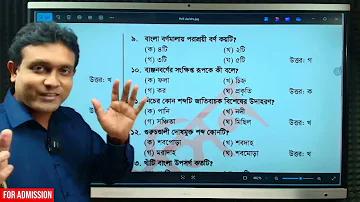 ৯. বাংলা বর্ণমালায় পরাশ্রয়ী বর্ণ কয়টি?
(ক) ৪টি (খ) ২টি
(গ) ৩টি (ঘ) ৫টি উত্তর: গ
১০. ব্যঞ্জনবর্ণের সংক্ষিপ্ত রূপকে কী বলে?
উত্তর: খ
(ক) ফলা (খ) চিহ্ন
(গ) কার (ঘ) প্রকৃতি উত্তর: ক
নিচের কোন শব্দটি জাতিবাচক বিশেষ্যের উদাহরণ?
(ক) পানি (খ) নদী
(গ) সঞ্চিতা (ঘ) মিছিল উত্তর: খ
১২. গুরুচণ্ডালী দোষমুক্ত শব্দ কোনটি?
(ক) শবপোড়া (খ) শবদাহ
(গ) মরাদাহ (ঘ) শবমোড়া উত্তর: খ
৩. খাঁটি বাংলা উপসর্গ কতটি?
FOR ADMISSION